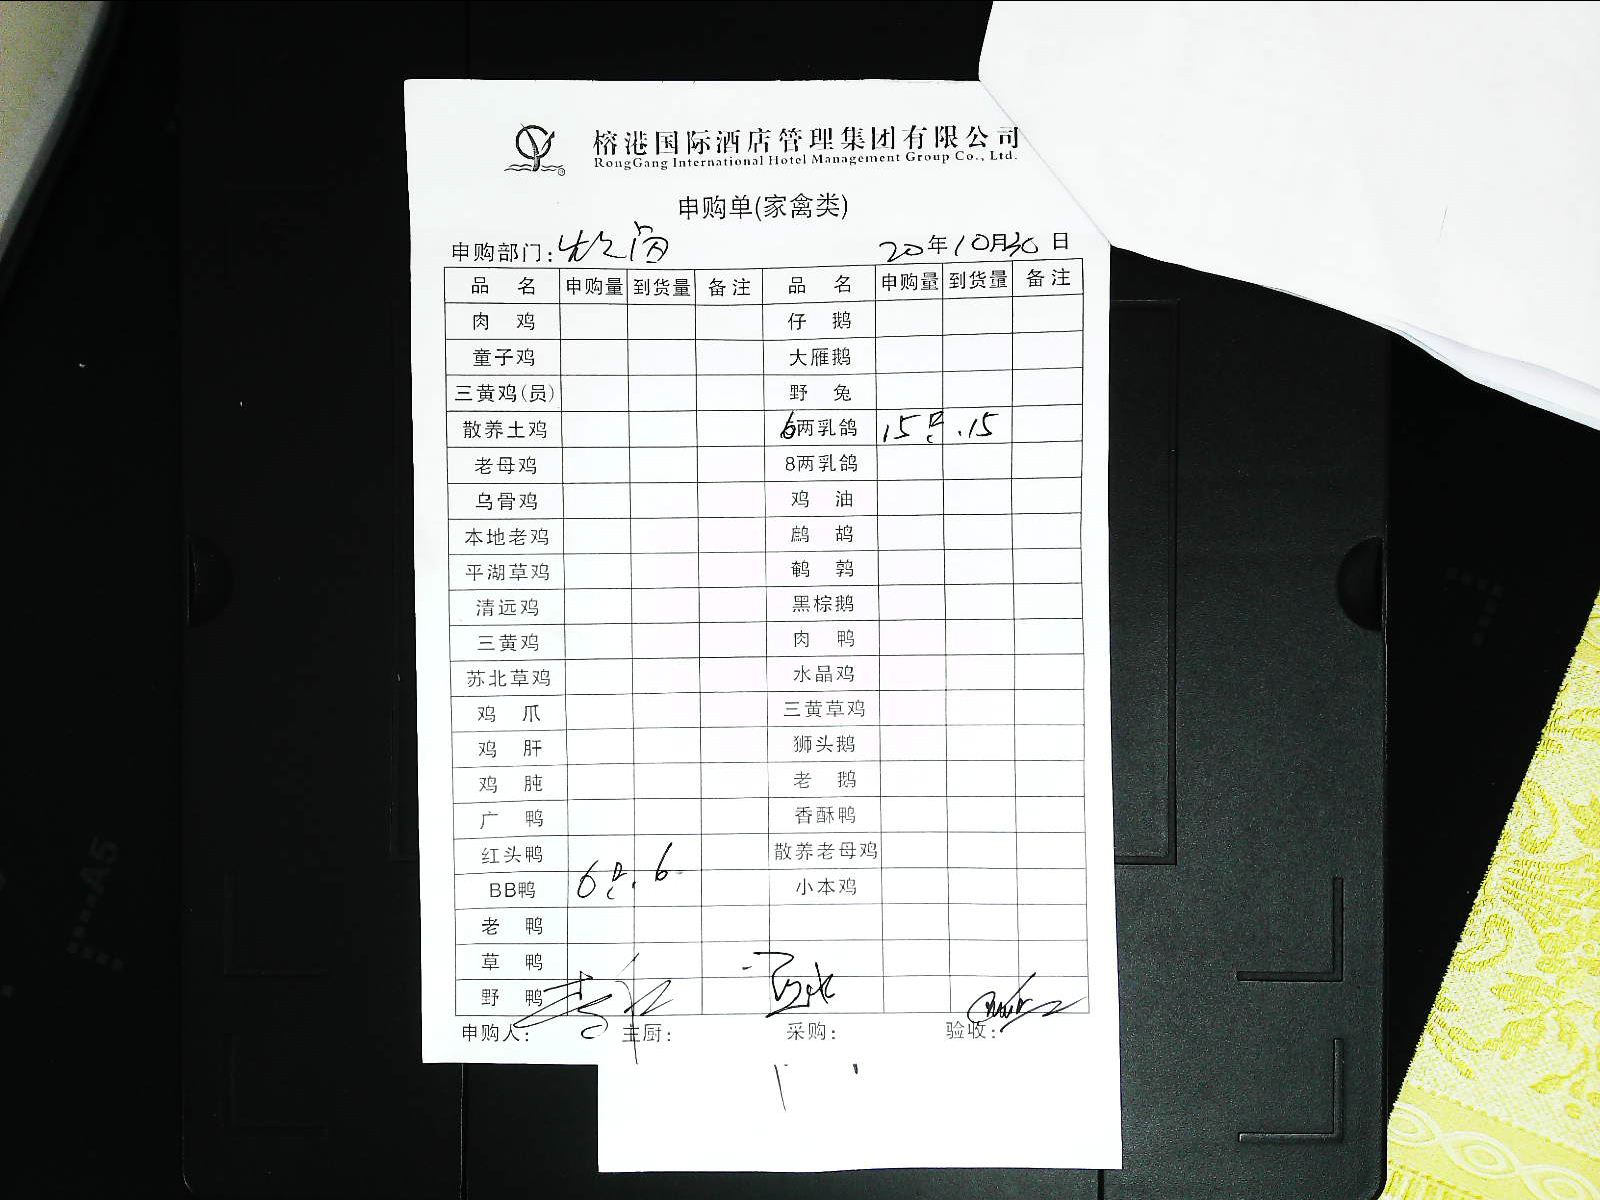 榕港国际酒店管理集团有限公司
RongGang International Hotel Management Group Co., Ltd.
申购单(家禽类)
申购部门: 20年10月30日
品名 申购量 到货量 备注 品名 申购量 到货量 备注
肉鸡 仔鹅
童子鸡 大雁鹅
三黄鸡(员) 野兔
散养土鸡 6两乳鸽 15只 .15
老母鸡 8两乳鸽
乌骨鸡 鸡油
本地老鸡 鹧鸪
平湖草鸡 鹌鹑
清远鸡 黑棕鹅
三黄鸡 肉鸭
苏北草鸡 水晶鸡
鸡爪 三黄草鸡
鸡肝 狮头鹅
鸡肫 老鹅
广鸭 香酥鸭
红头鸭 散养老母鸡
BB鸭 6只. 6 小本鸡
老鸭
草鸭
野鸭
申购人: 主厨: 采购: 验收:
A5